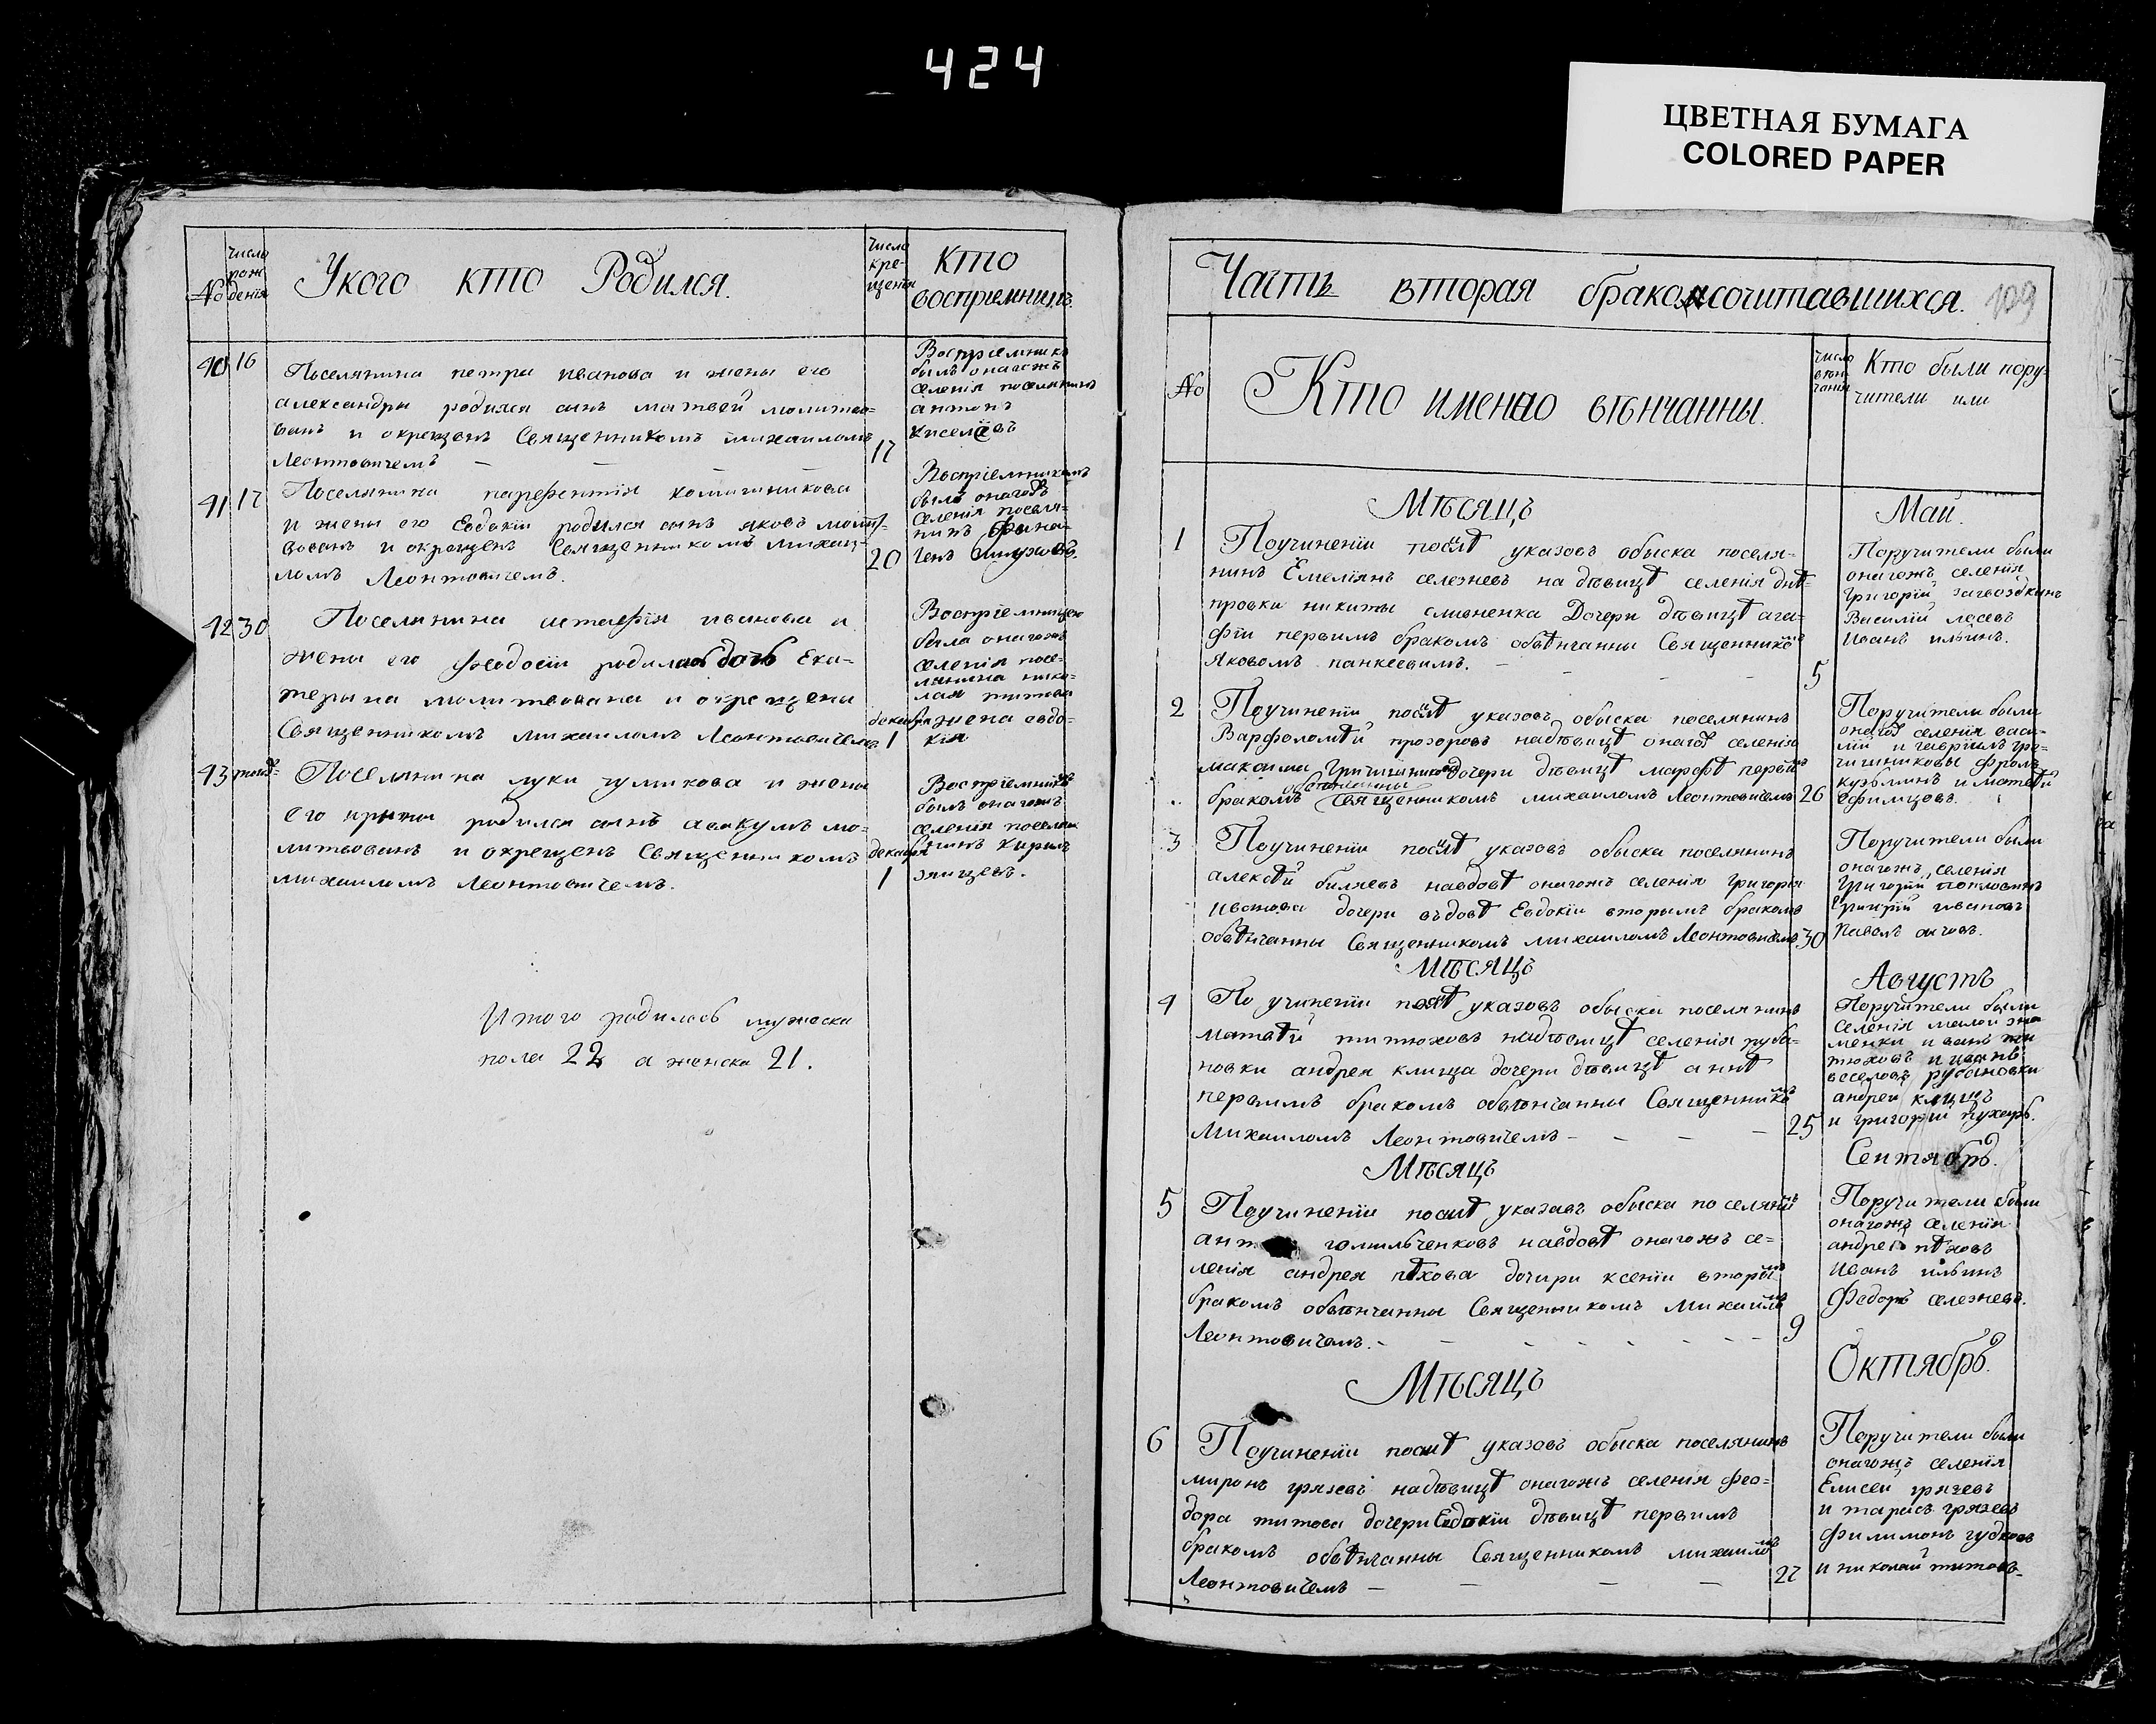 424
ЦВЕТНАЯ БУМАГА
COLORED PAPER
№
число рож дения
Укого кто Родился.
число кре- щения
кто восприемникъ.
40 16
Поселянина петра иванова и жены его
александры родился сынъ матвей молитво=
ванъ и окрещенъ Священникомъ михаиломъ
Леонтовичемъ
17
Восприемникъ
былъ онагожъ
селенія поселянинъ
антонъ
киселевъ
41 17
Поселянина парфентія
и жены его Евдокіи родился сынъ яковъ молит=
вованъ и окрещенъ Священникомъ михаи=
ломъ Леонтовичемъ.
20
Воспріемникомъ
былъ онагожъ
селенія поселя=
нинъ
42 30
Поселянина астафія иванова и
жены его феодосіи родилась дочь Ека=
терына молитвована и окрещена
Священникомъ михаиломъ Леонтовичемъ
декабря 1
Воспріемницею
была онагожъ
селенія посе=
лянина нико=
лая титова
жена овдо=
кія
43
Поселянина луки чуликова и жены
его ирины родился сынъ авакумъ мо=
литвованъ и окрещенъ Священникомъ
михаиломъ Леонтовичемъ.
декабря
1
Воспріемникъ
былъ онагожъ
селенія поселян
нинъ кирилъ
Итого родилось мужеска
пола 22 а женска 21.
Часть вторая бракосочитавшихся. 109
№
Кто именно вѣнчанны.
число вѣн- чанія
Кто были пору- чители или
Мѣсяцъ Май.
1
Поучиненіи посилѣ указовъ обыска поселя=
нинъ Емеліянъ селезневъ на дѣвицѣ селенія днѣ=
провки никиты сливненка Дочери дѣвицѣ ага=
фіи первимъ бракомъ обвѣнчанны Священнико
Яковомъ панкеевимъ.
5
Поручители были
онагожъ селенія
Григорій загвоздкинъ
Василій лесевъ
Иванъ ильинъ.
2
Поучиненіи посилѣ указовъ обыска поселянинъ
Варфоломѣй прозоровъ надѣвицѣ онагожъ селенія
максима Гричишникова дочери дѣвицѣ марфѣ первимъ
обвѣнчанны
бракомъ Священникомъ михаиломъ Леонтовичемъ 26
Поручители были
онагожъ селенія васи=
лій и гавріилъ гре=
чишниковы фролъ
кузьминъ и матвѣй
ефимцовъ.
3
Поучиненіи посилѣ указовъ обыска поселянинъ
алексѣй биляевъ навдовѣ онагожъ селенія григорія
иванова дочери вдовѣ Евдокіи вторымъ бракомъ
обвѣнчанны Священникомъ михаиломъ Леонтовичемъ 30
Поручители были
онагожъ селенія
Григорій
Григорій ивановъ
Павелъ
Мѣсяцъ Августъ
4
По учиненіи посилѣ указовъ обыска поселянинъ
матвѣй титюховъ надѣвицѣ селенія руба=
новки андрея клища дочери дѣвицѣ аннѣ
первимъ бракомъ обвѣнчанны Священникомъ
Михаиломъ Леонтовичемъ
25
Поручители были
селенія малой зна
менки иванъ ти
тюховъ и иванъ
веселовъ рубановки
андрей клищъ
и григорій пухирь.
Мѣсяцъ Сентябрь.
5
Поучиненіи посилѣ указовъ обыска поселянинъ
голильченковъ навдовѣ онагожъ се=
ленія андрея пѣхова дочири ксеніи вторимъ
бракомъ обвѣнчанны Священникомъ Михаиломъ
Леонтовичемъ.
9
Поручители были
онагожъ селенія
андрей пѣховъ
Иванъ ильинъ
Федоръ селезневъ.
Мѣсяцъ Октябрь.
6
Поучиненіи посилѣ указовъ обыска поселянинъ
миронъ грязевъ надѣвицѣ онагожъ селенія фео=
дора титова дочери Евдокіи дѣвицѣ первимъ
бракомъ обвѣнчанны Священникомъ михаиломъ
Леонтовичемъ
27
Поручители были
онагожъ селенія
Елисей грязевъ
и тарасъ грязевъ
филимонъ гудковъ
и николай титовъ